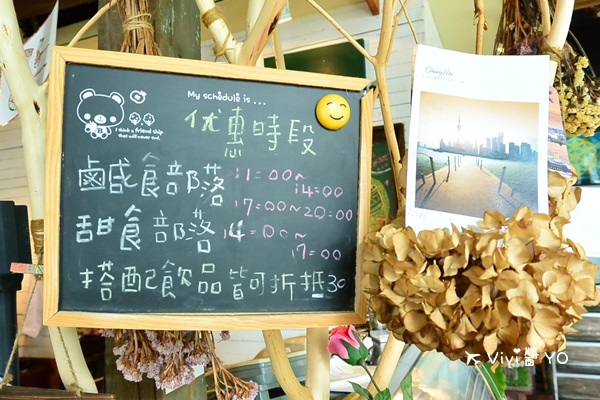 My schedule is ...
I think that a friend ship
that will never end.
优惠時段
鹵咸食部落 11=00~
14=00
17=00~20=00
甜食部落 14=00~
17=00
搭配飲品皆可折抵30
ViVi醬YO